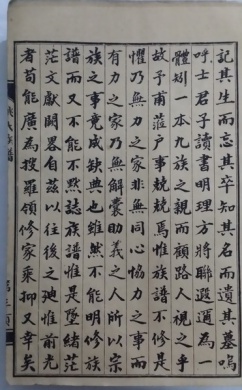 記其生而忘其卒知其名而遺其墓嗚
呼士君子讀書明理方將聯遐邇為一
體矧一本九族之親而顧路人視之乎
故子甫蒞戶事兢兢焉惟族譜不修是
懼乃無力之家非無同心協力之事而
有力之家乃無解囊助義之人所以宗
族之事竟成缺典也雖然不能明修族
譜而又不能不默誌族譜惟是墜緒茫
茫文獻闕畧自茲以往後之踵惟前光
者苟能廣為搜羅領修家乘抑又幸矣